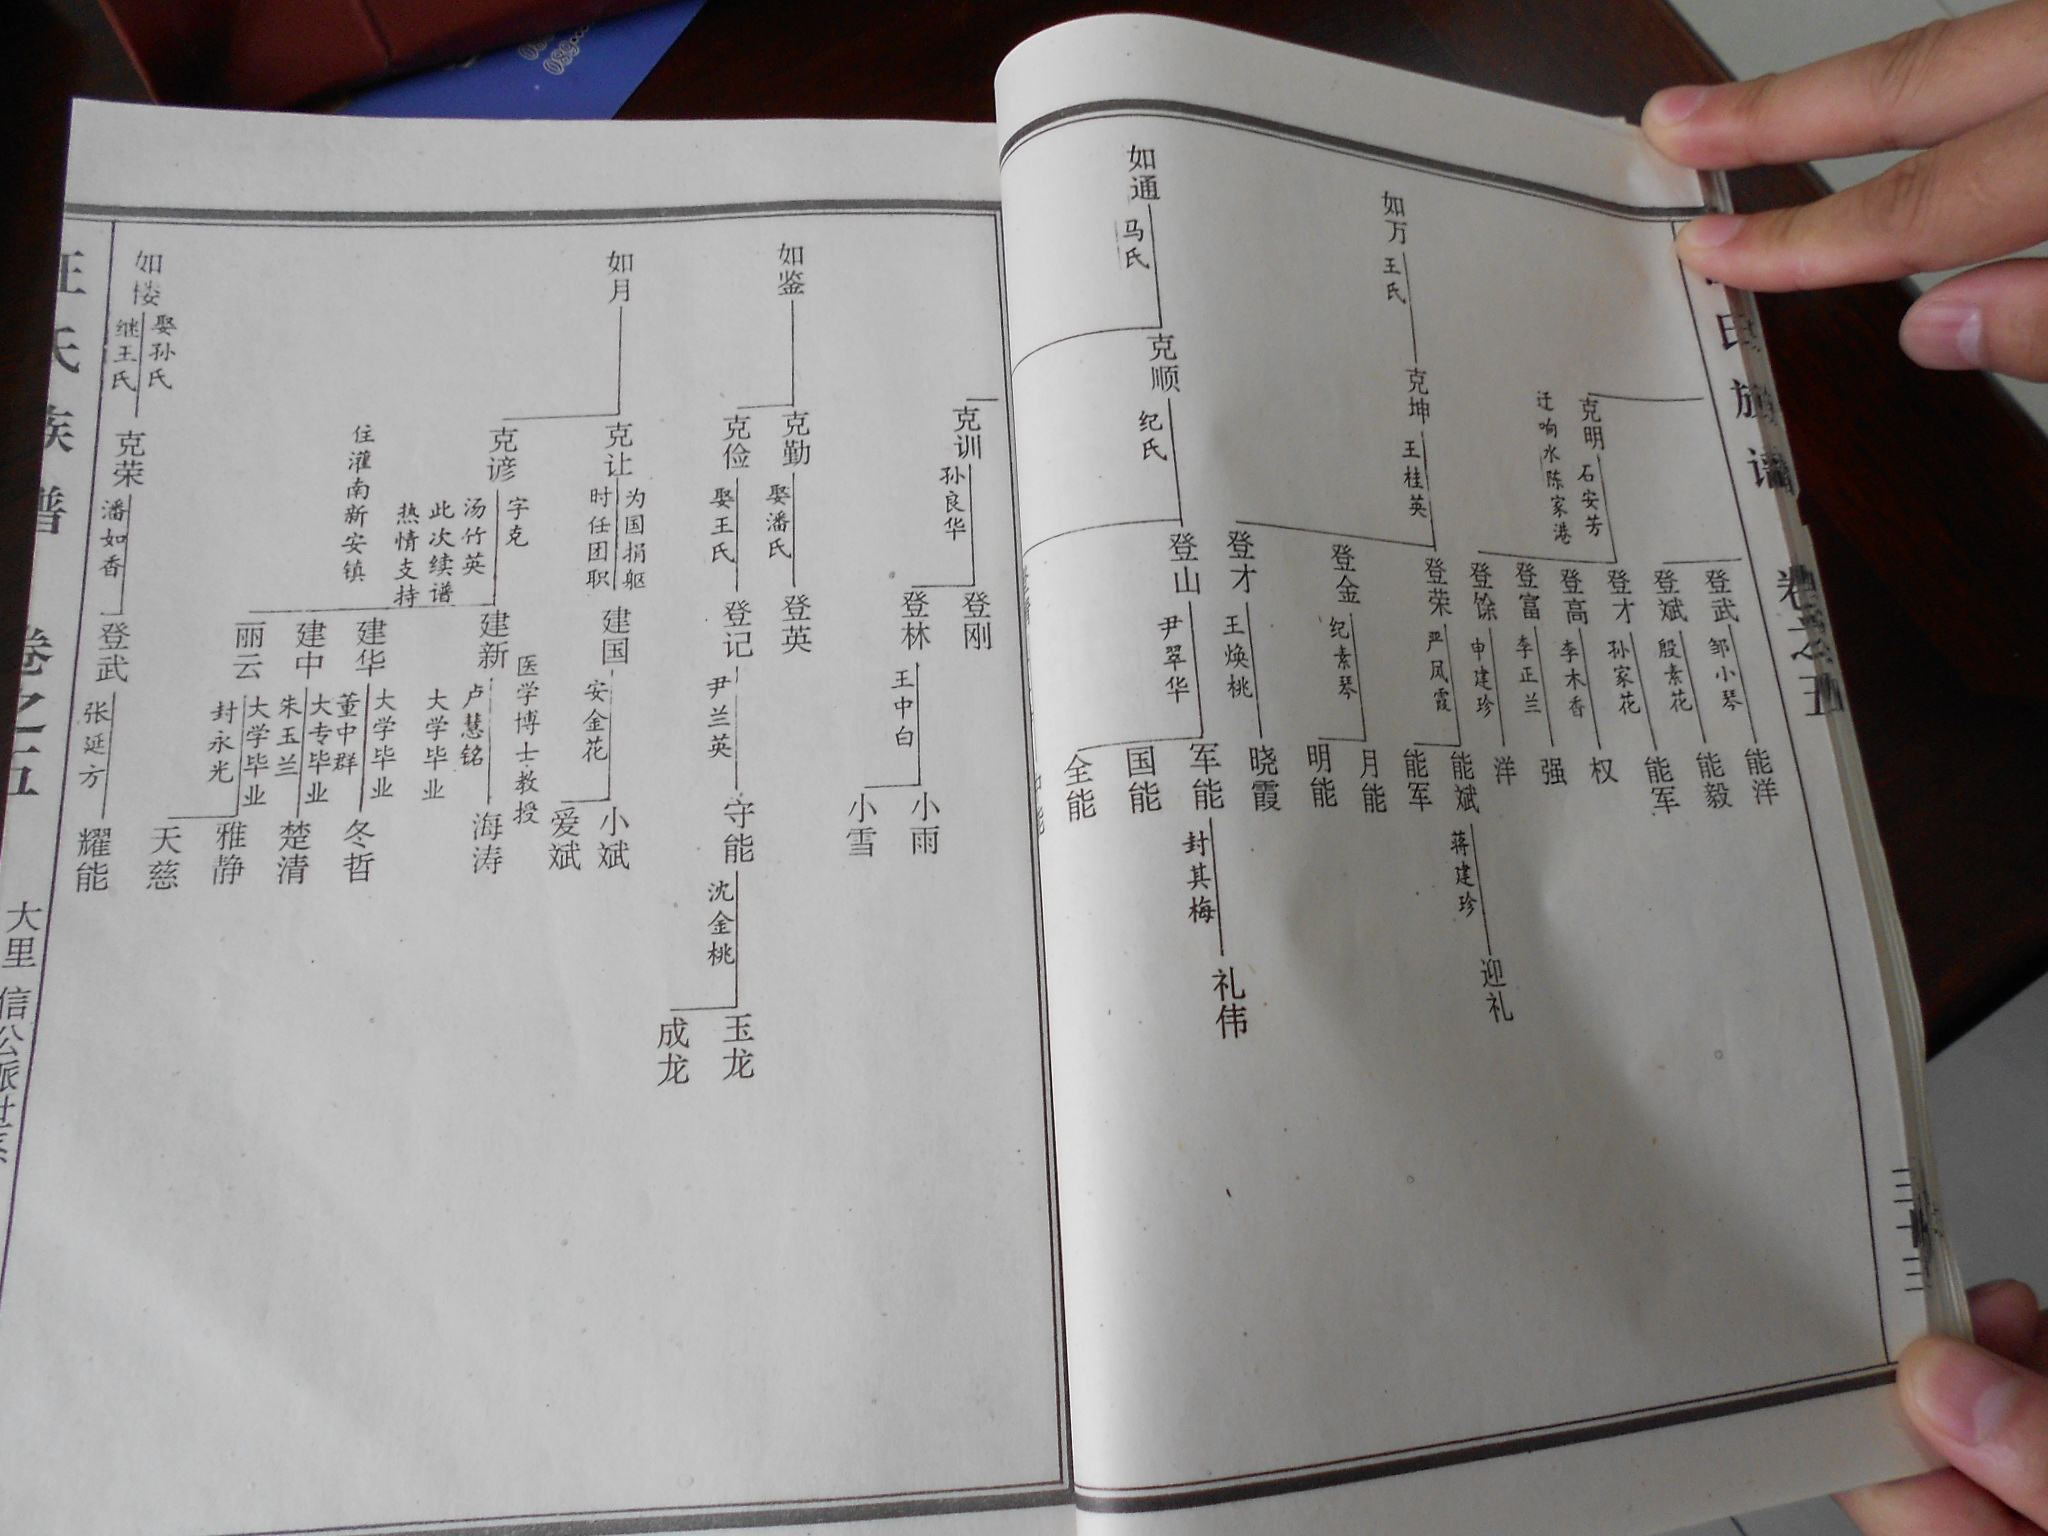 氏族谱
卷之五
三十三
登武
邹小琴
能洋
登斌
殷素花
能毅
克明
石安芳
迁响水陈家港
登才
孙家花
能军
登高
李木香
权
登富
李正兰
强
登馀
申建珍
洋
如万
王氏
克坤
王桂英
登荣
严凤霞
能斌
蒋建珍
迎礼
能军
登金
纪素琴
月能
明能
登才
王焕桃
晓霞
如通
马氏
克顺
纪氏
登山
尹翠华
军能
封其梅
礼伟
国能
全能
克训
孙良华
登刚
登林
王中白
小雨
小雪
如鉴
克勤
娶潘氏
登英
克俭
娶王氏
登记
尹兰英
守能
沈金桃
玉龙
成龙
如月
克让
为国捐躯
时任团职
建国
安金花
小斌
爱斌
克谚
字克
汤竹英
此次续谱
热情支持
住灌南新安镇
建新
医学博士教授
卢慧铭
大学毕业
海涛
建华
大学毕业
董中群
冬哲
建中
大专毕业
朱玉兰
楚清
丽云
大学毕业
封永光
雅静
天慈
如楼
娶孙氏
继王氏
克荣
潘如香
登武
张延方
耀能
汪氏族谱
卷之五
大里
信公派世系